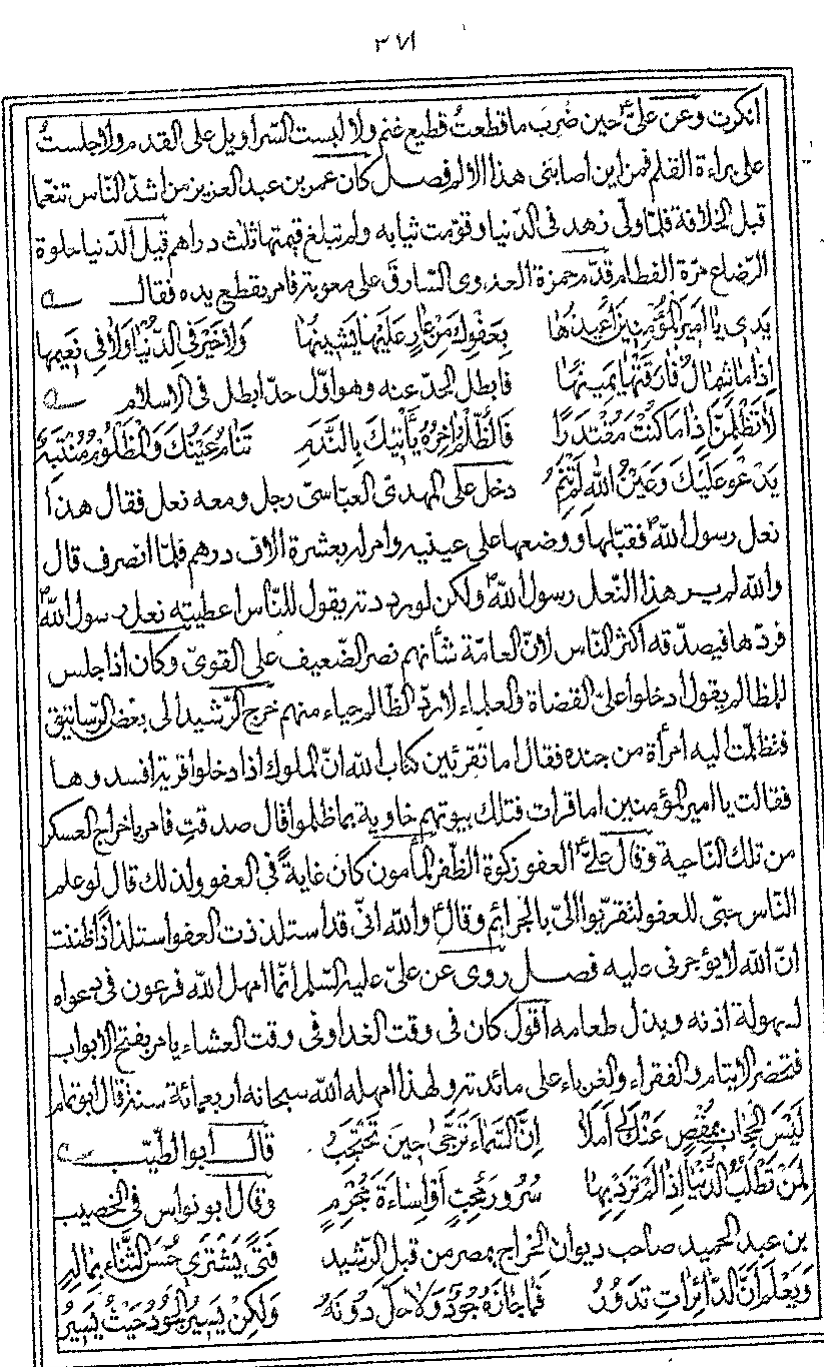 ٣٧١
انكرت وعن علىّ ع حين ضُرِبَ ما قطعتُ قطيع غنم ولا لبست السّراويل على القدم ولا جلستُ
على براءة القلم فمن اين اصابنى هذا الالم فصل كان عمر بن عبد العزيز من اشدّ النّاس تنعّما
قبل الخلافة فلمّا ولّى زهد فى الدّنيا وقوّمت ثيابه ولم تبلغ قيمتها ثلث دراهم قيل الدّنيا حلوة
الرّضاع مرّة الفطام قدّم حمزة العدوى السّارق على معوية فامر بقطع يده فقال
يَدى يا اَميرَ المُؤْمِنينَ اُعيذُها بِعَفْوِكَ مِنْ عارٍ عَلَيْها يَشينُها وَلا خَيْرَ فِى الدُّنْيا وَلا فى نَعيمِها
اِذا ما شِمالٌ فارَقَتْها يَمينُها فابطل الحدّ عنه وهو اوّل حدّ ابطل فى الاسلام
لا تَظْلِمَنَّ اِذا ما كُنْتَ مُقْتَدِرًا فَالظُّلْمُ اخِرُهُ يَأْتيكَ بِالنَّدَمِ تَنامُ عَيْنُكَ وَالْمَظْلُومُ مُنْتَبِهٌ
يَدْعُو عَلَيْكَ وَعَيْنُ اللهِ لَمْ تَنَمِ دخل على المهدى العبّاسىّ رجل ومعه نعل فقال هذا
نعل رسول الله ص فقبّلها ووضعها على عينيه وامر له بعشرة الاف درهم فلمّا انصرف قال
والله لم ير هذا النّعل رسول الله ص ولكن لو رددته يقول للنّاس اعطيته نعل رسول الله ص
فردّها فيصدّقه اكثر النّاس لانّ العامّة شأنهم نصر الضّعيف على القوىّ وكان اذا جلس
للمظالم يقول ادخلوا علىّ القضاة والعلماء لاردّ الظّالم حياء منهم خرج الرّشيد الى بعض الرّساتيق
فتظلّمت اليه امرأة من جنده فقال اما تقرئين كتاب الله انّ الملوك اذا دخلوا قرية افسدوها
فقالت يا امير المؤمنين اما قرات فتلك بيوتهم خاوية بما ظلموا قال صدقتِ فامر باخراج العسكر
من تلك النّاحية وقال علىّ ع العفو زكوة الظّفر المأمون كان غايةً فى العفو ولذلك قال لو علم
النّاس حبّى للعفو لتقرّبوا الىّ بالجرائم وقال والله انّى قد استلذذت العفو استلذاذًا ظننت
انّ الله لا يؤجرنى عليه فصل روى عن علىّ عليه السّلم انّما امهل الله فرعون فى دعواه
لسهولة اذنه وبذل طعامه اقول كان فى وقت الغدا وفى وقت العشاء يامر بفتح الابواب
فتحضر الايتام والفقراء والغرباء على مائدته ولهذا امهله الله سبحانه اربعمائة سنة قال ابو تمام
لَيْسَ الْحِجابُ بِمُقْصٍ عَنْكَ لى اَمَلًا اِنَّ السَّماءَ تُرَجّى حينَ تَحْتَجِبُ قال ابو الطّيّب
لِمَنْ تَطْلُبُ الدُّنْيا اِذا لَمْ تُرِدْ بِها سُرُورَ مُحِبٍّ اَوْ اِساءَةَ مُجْرِمٍ وقال ابو نواس فى الخصيب
بن عبد الحميد صاحب ديوان الخراج بمصر من قبل الرّشيد فَتًى يَشْتَرى حُسْنَ الثَّناءِ بِمالِهِ
وَيَعْلَمُ اَنَّ الدّائِراتِ تَدُورُ فَما جازَهُ جُودٌ وَلا حَلَّ دُونَهُ وَلكِنْ يَسيرُ الْجُودُ حَيْثُ يَسيرُ